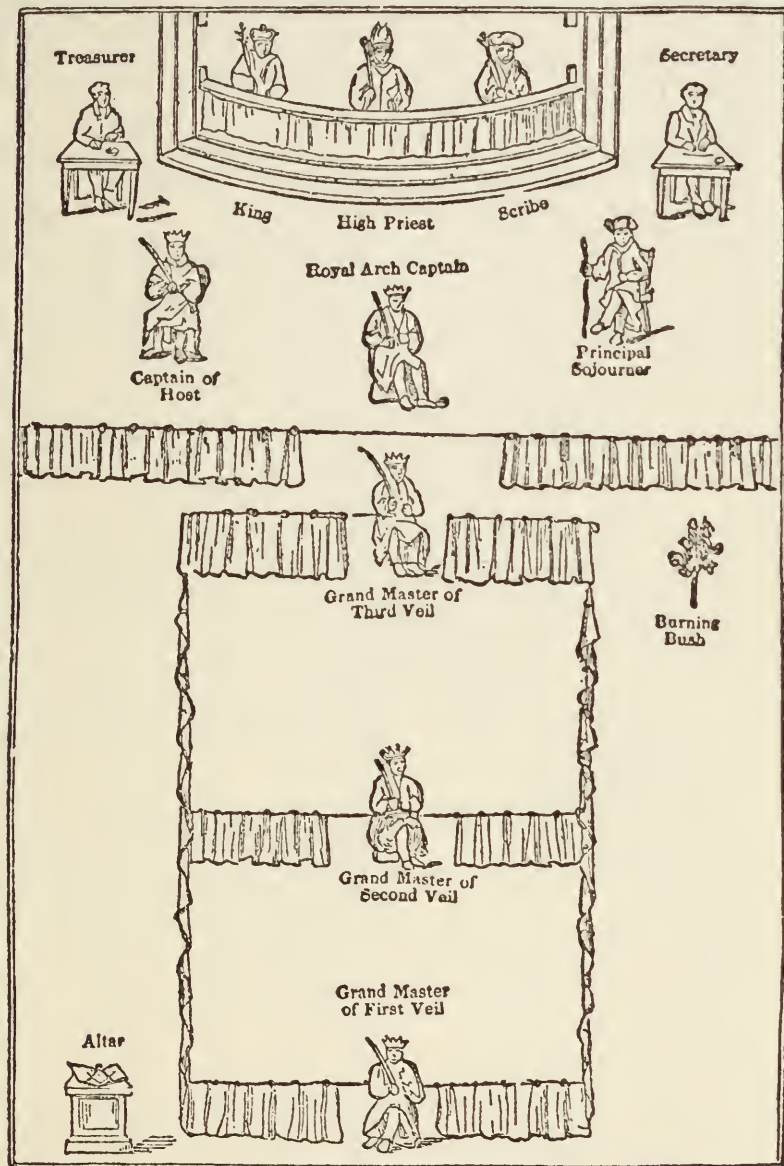 Treasurer
Secretary
King
High Priest
Scribe
Royal Arch Captain
Captain of
Host
Principal
Sojourner
Grand Master of
Third Veil
Burning
Bush
Grand Master of
Second Veil
Grand Master
of First Veil
Altar